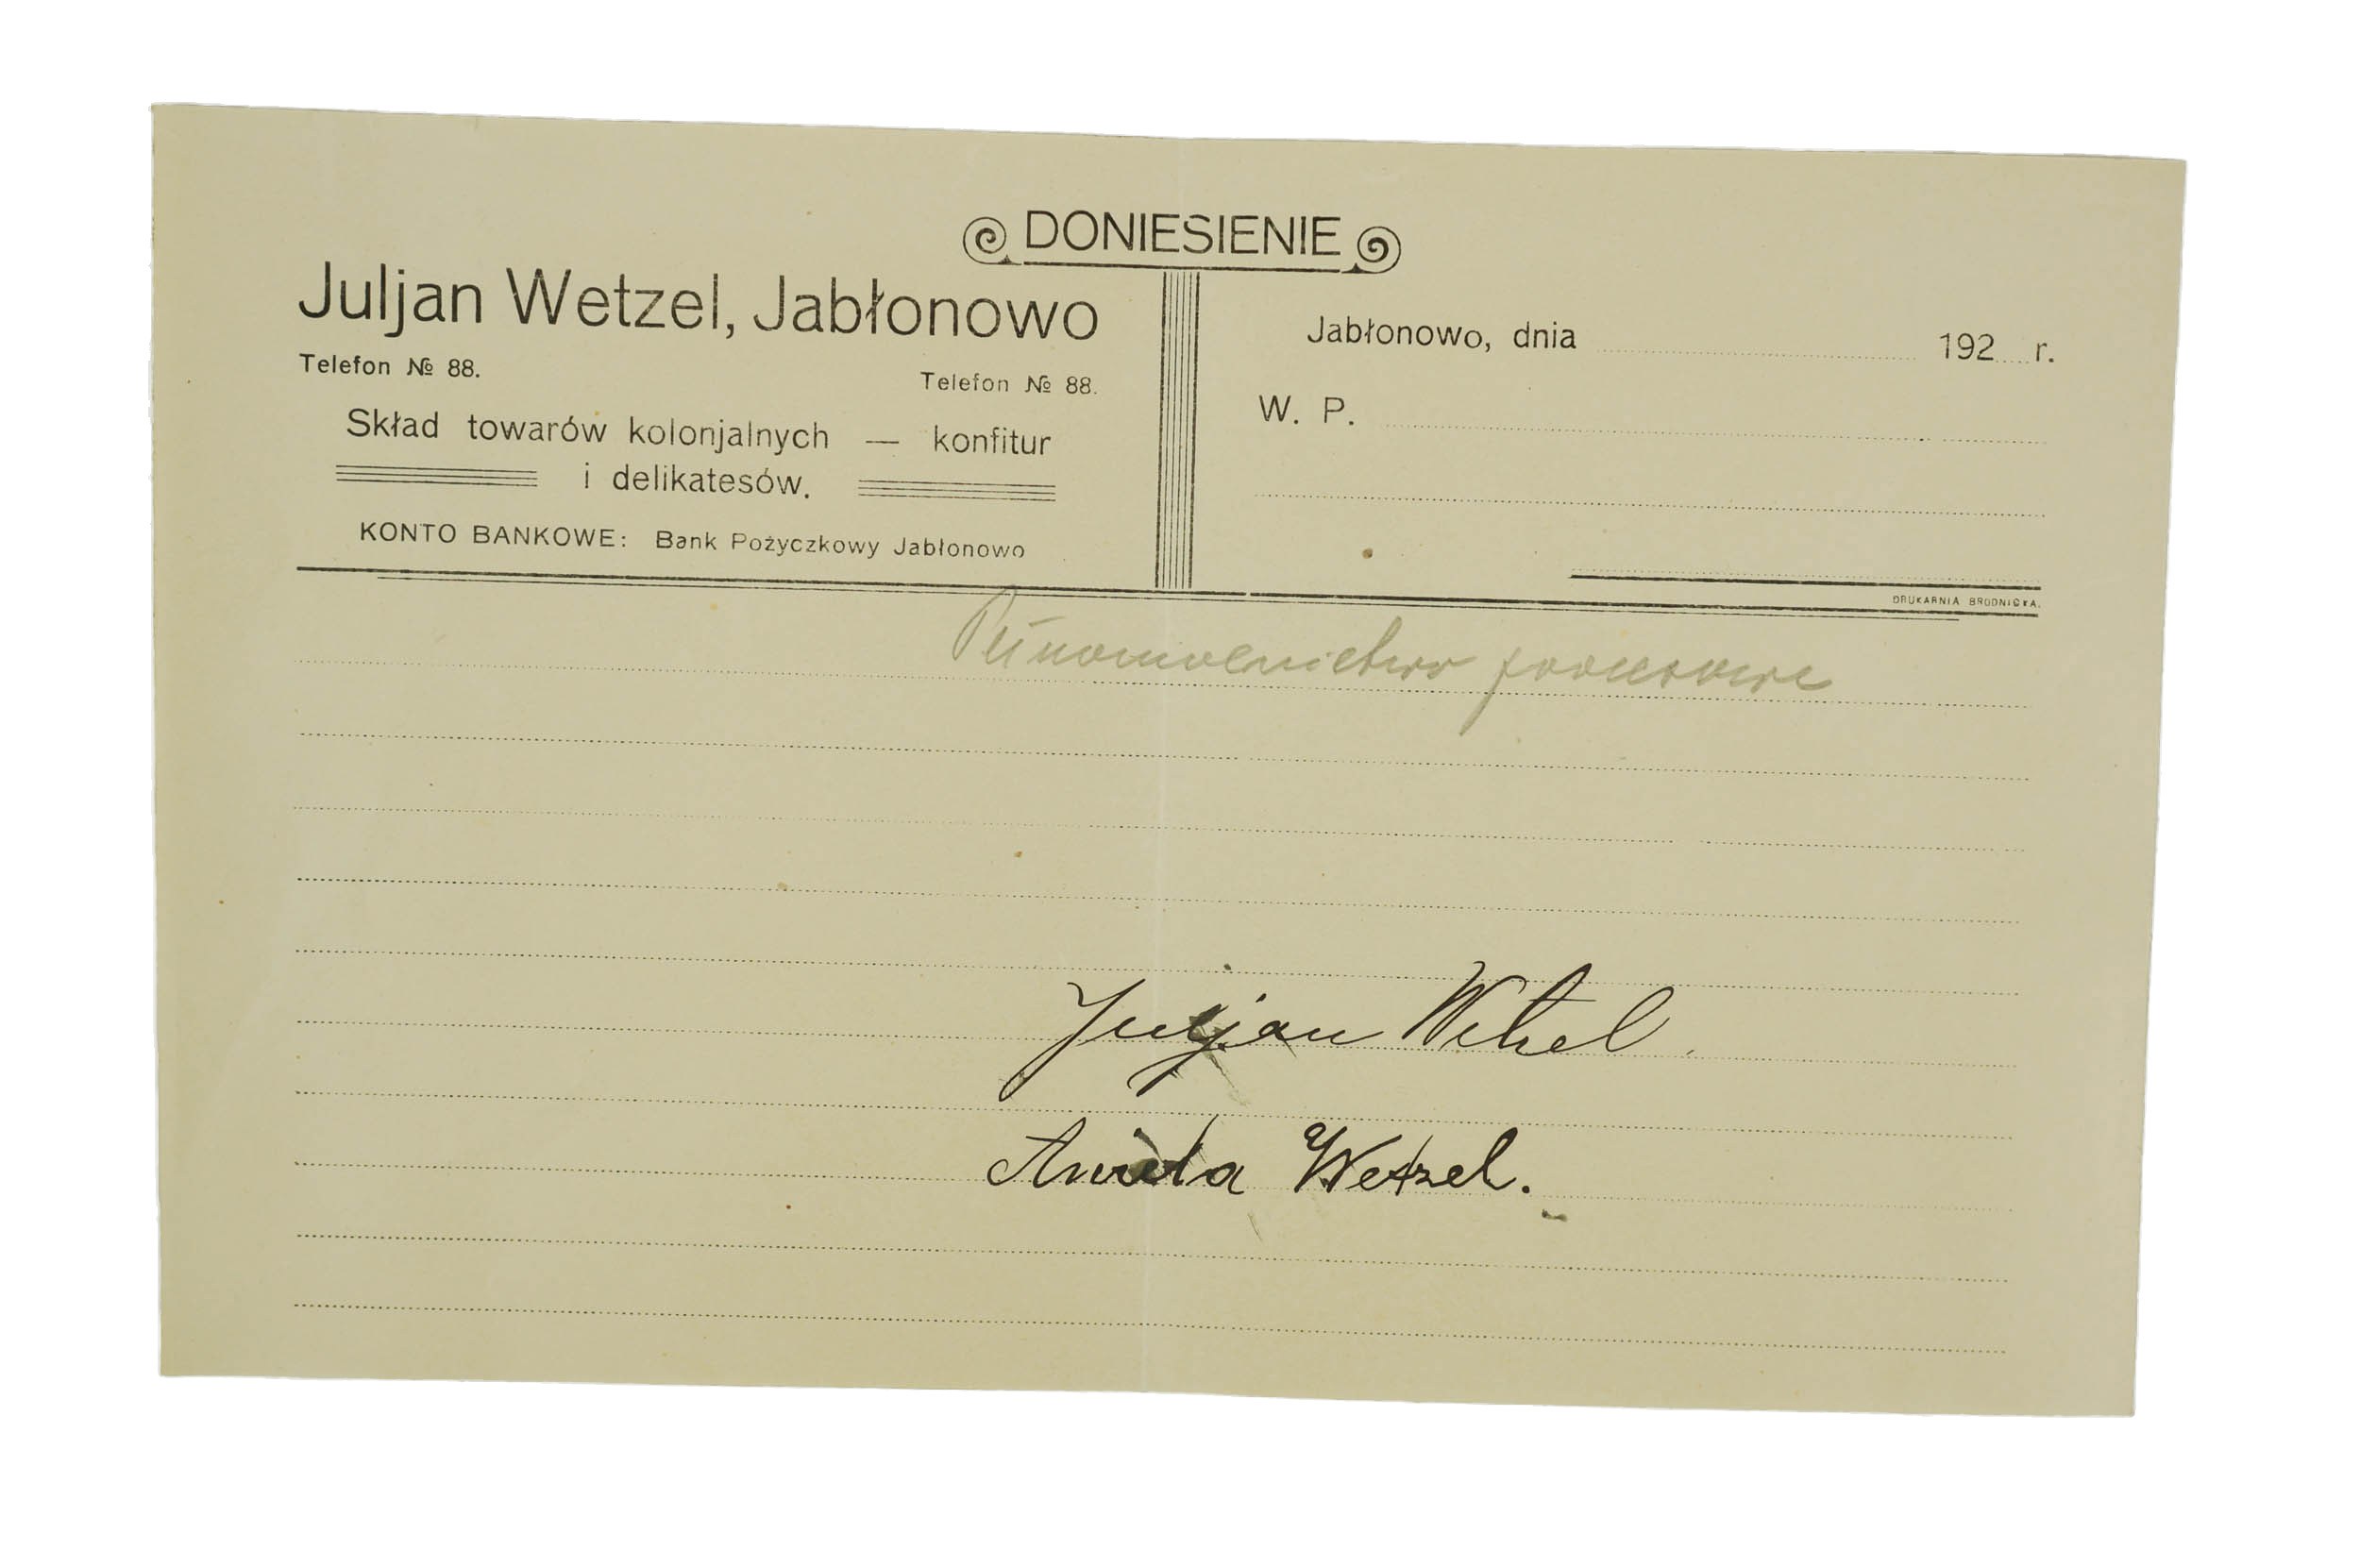 DONIESIENIE
Juljan Wetzel, Jabłonowo
Telefon № 88. Telefon № 88.
Skład towarów kolonjalnych — konfitur
i delikatesów.
KONTO BANKOWE: Bank Pożyczkowy Jabłonowo
Jabłonowo, dnia 192 r.
W. P.
DRUKARNIA BRODNICKA.
Pełnomocnictwo procesowe
Juljan Wetzel
Aniela Wetzel.